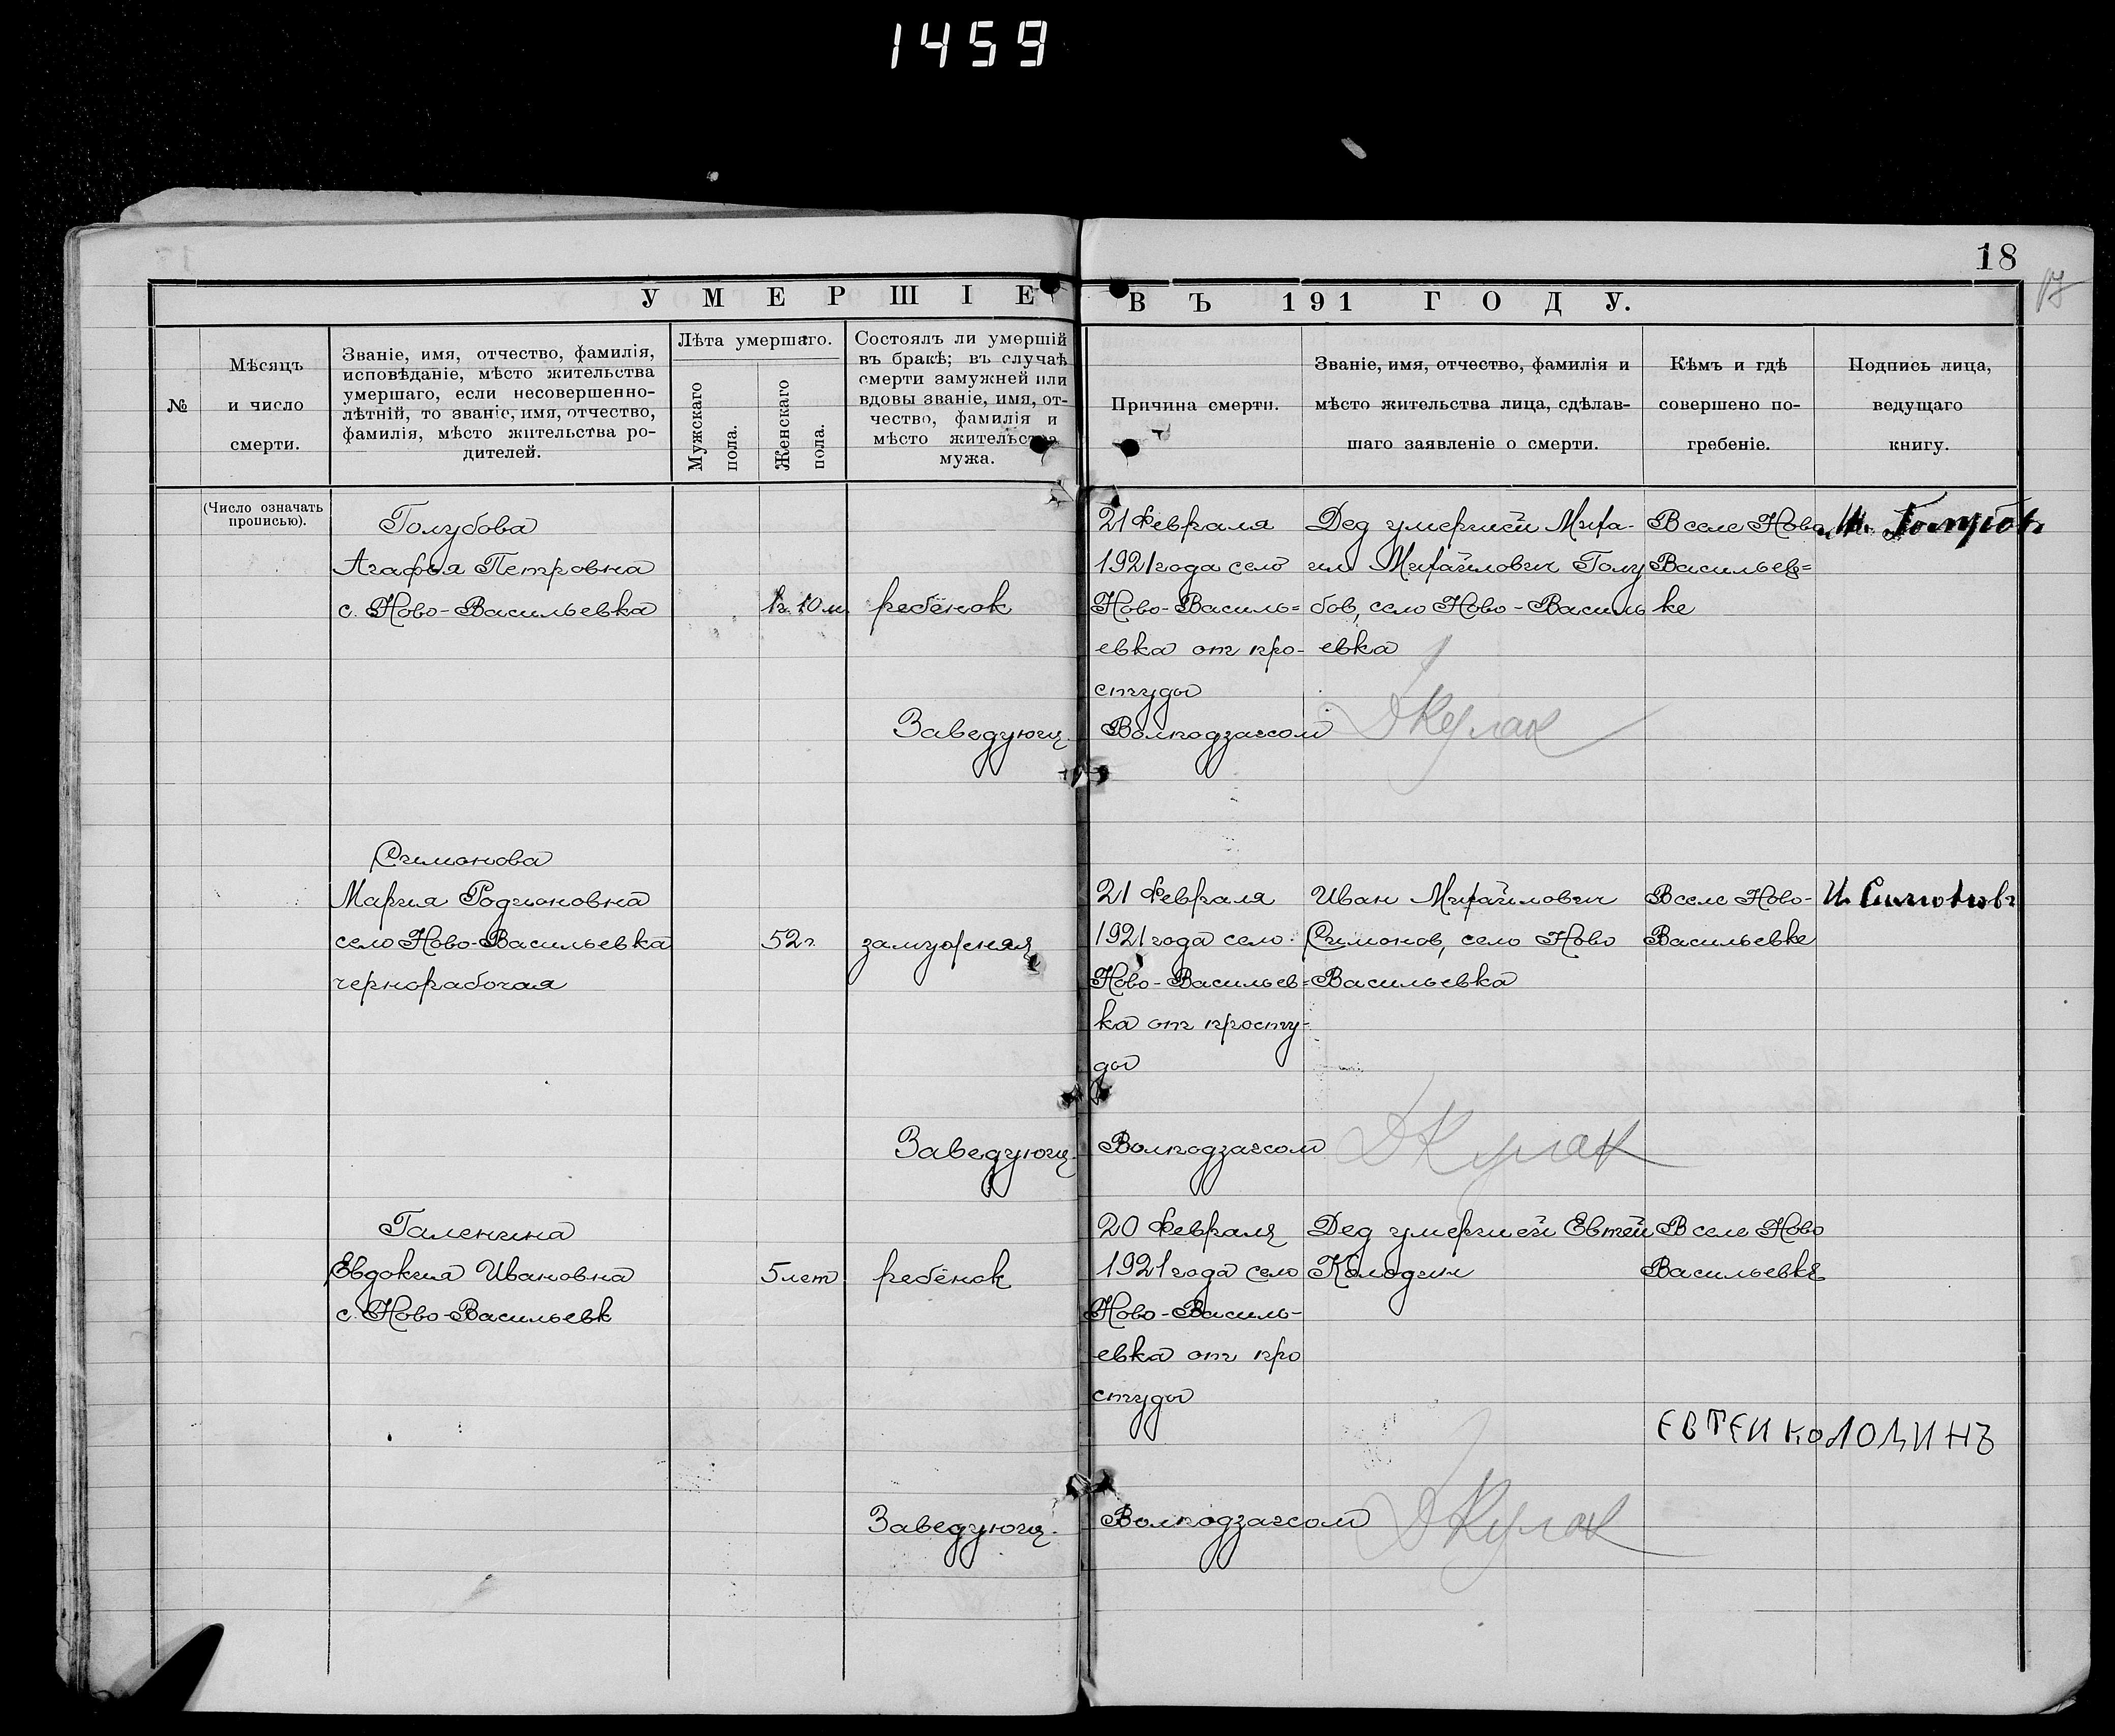 1459
18
УМЕРШІЕ ВЪ 191 ГОДУ.
№
Мѣсяцъ
и число
смерти.
Званіе, имя, отчество, фамилія,
исповѣданіе, мѣсто жительства
умершаго, если несовершенно-
лѣтній, то званіе, имя, отчество,
фамилія, мѣсто жительства ро-
дителей.
Лѣта умершаго.
Мужскаго
пола.
Женскаго
пола.
Состоялъ ли умершій
въ бракѣ; въ случаѣ
смерти замужней или
вдовы званіе, имя, от-
чество, фамилія и
мѣсто жительства
мужа.
Причина смерти.
Званіе, имя, отчество, фамилія и
мѣсто жительства лица, сдѣлав-
шаго заявленіе о смерти.
Кѣмъ и гдѣ
совершено по-
гребеніе.
Подпись лица,
ведущаго
книгу.
(Число означать
прописью).
Голубова
Агафья Петровна
с. Ново-Васильевка
1г. 10 м.
ребёнок
21 Февраля
1921 года село
Ново-Василь=
евка от про-
студы
Дед умершей Миха-
ил Михайлович Голу
бов, село Ново-Василь
евка
В селе Ново
Васильев=
ке
М. Голубов
Заведующ. Волподзагсом ДКулак
Симонова
Мария Родионовна
село Ново-Васильевка
чернорабочая
52 г.
замужняя
21 Февраля
1921 года село
Ново-Васильев=
ка от просту-
ды
Иван Михайлович
Симонов, село Ново
Васильевка
В селе Ново-
Васильевке
И. Симоновъ
Заведующ. Волподзагсом ДКулак
Галенина
Евдокия Ивановна
с. Ново-Васильевк
5 лет
ребёнок
20 Февраля
1921 года село
Ново-Василь-
евка от про
студы
Дед умершей Евтей
Колодин
В селе Ново
Васильевке
ЕВТЕИ КОЛОДИНЪ
Заведующ. Волподзагсом ДКулак